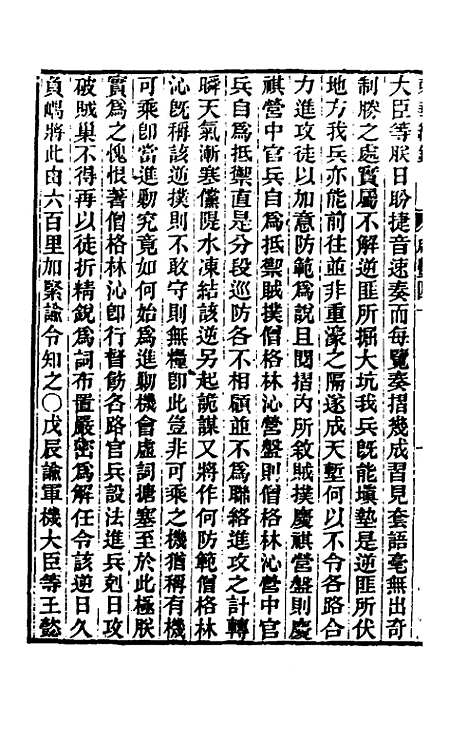 大臣等朕日盼捷音速奏而每覽奏摺幾成習見套語毫無出奇
制勝之處實屬不解逆匪所掘大坑我兵旣能塡墊是逆匪所伏
地方我兵亦能前往並非重濠之隔遂成天塹何以不令各路合
力進攻徒以加意防範爲說且閱摺內所敘賊撲慶祺營盤則慶
祺營中官兵自爲抵禦賊撲僧格林沁營盤則僧格林沁營中官
兵自爲抵禦直是分段巡防各不相顧並不爲聯絡進攻之計轉
瞬天氣漸寒儻隄水凍結該逆另起詭謀又將作何防範僧格林
沁旣稱該逆撲則不敢守則無糧卽此豈非可乘之機猶稱有機
可乘卽當進勦究竟如何始爲進勦機會虛詞搪塞至於此極朕
實爲之愧恨著僧格林沁卽行督飭各路官兵設法進兵剋日攻
破賊巢不得再以徒折精銳爲詞布置嚴密爲解任令該逆日久
負嵎將此由六百里加緊諭令知之○戊辰諭軍機大臣等王懿